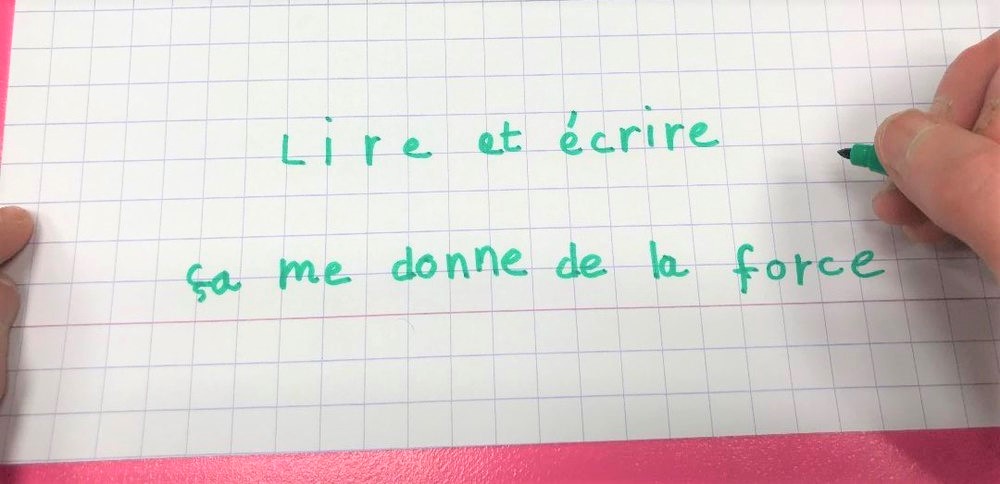 Lire et écrire
ça me donne de la force